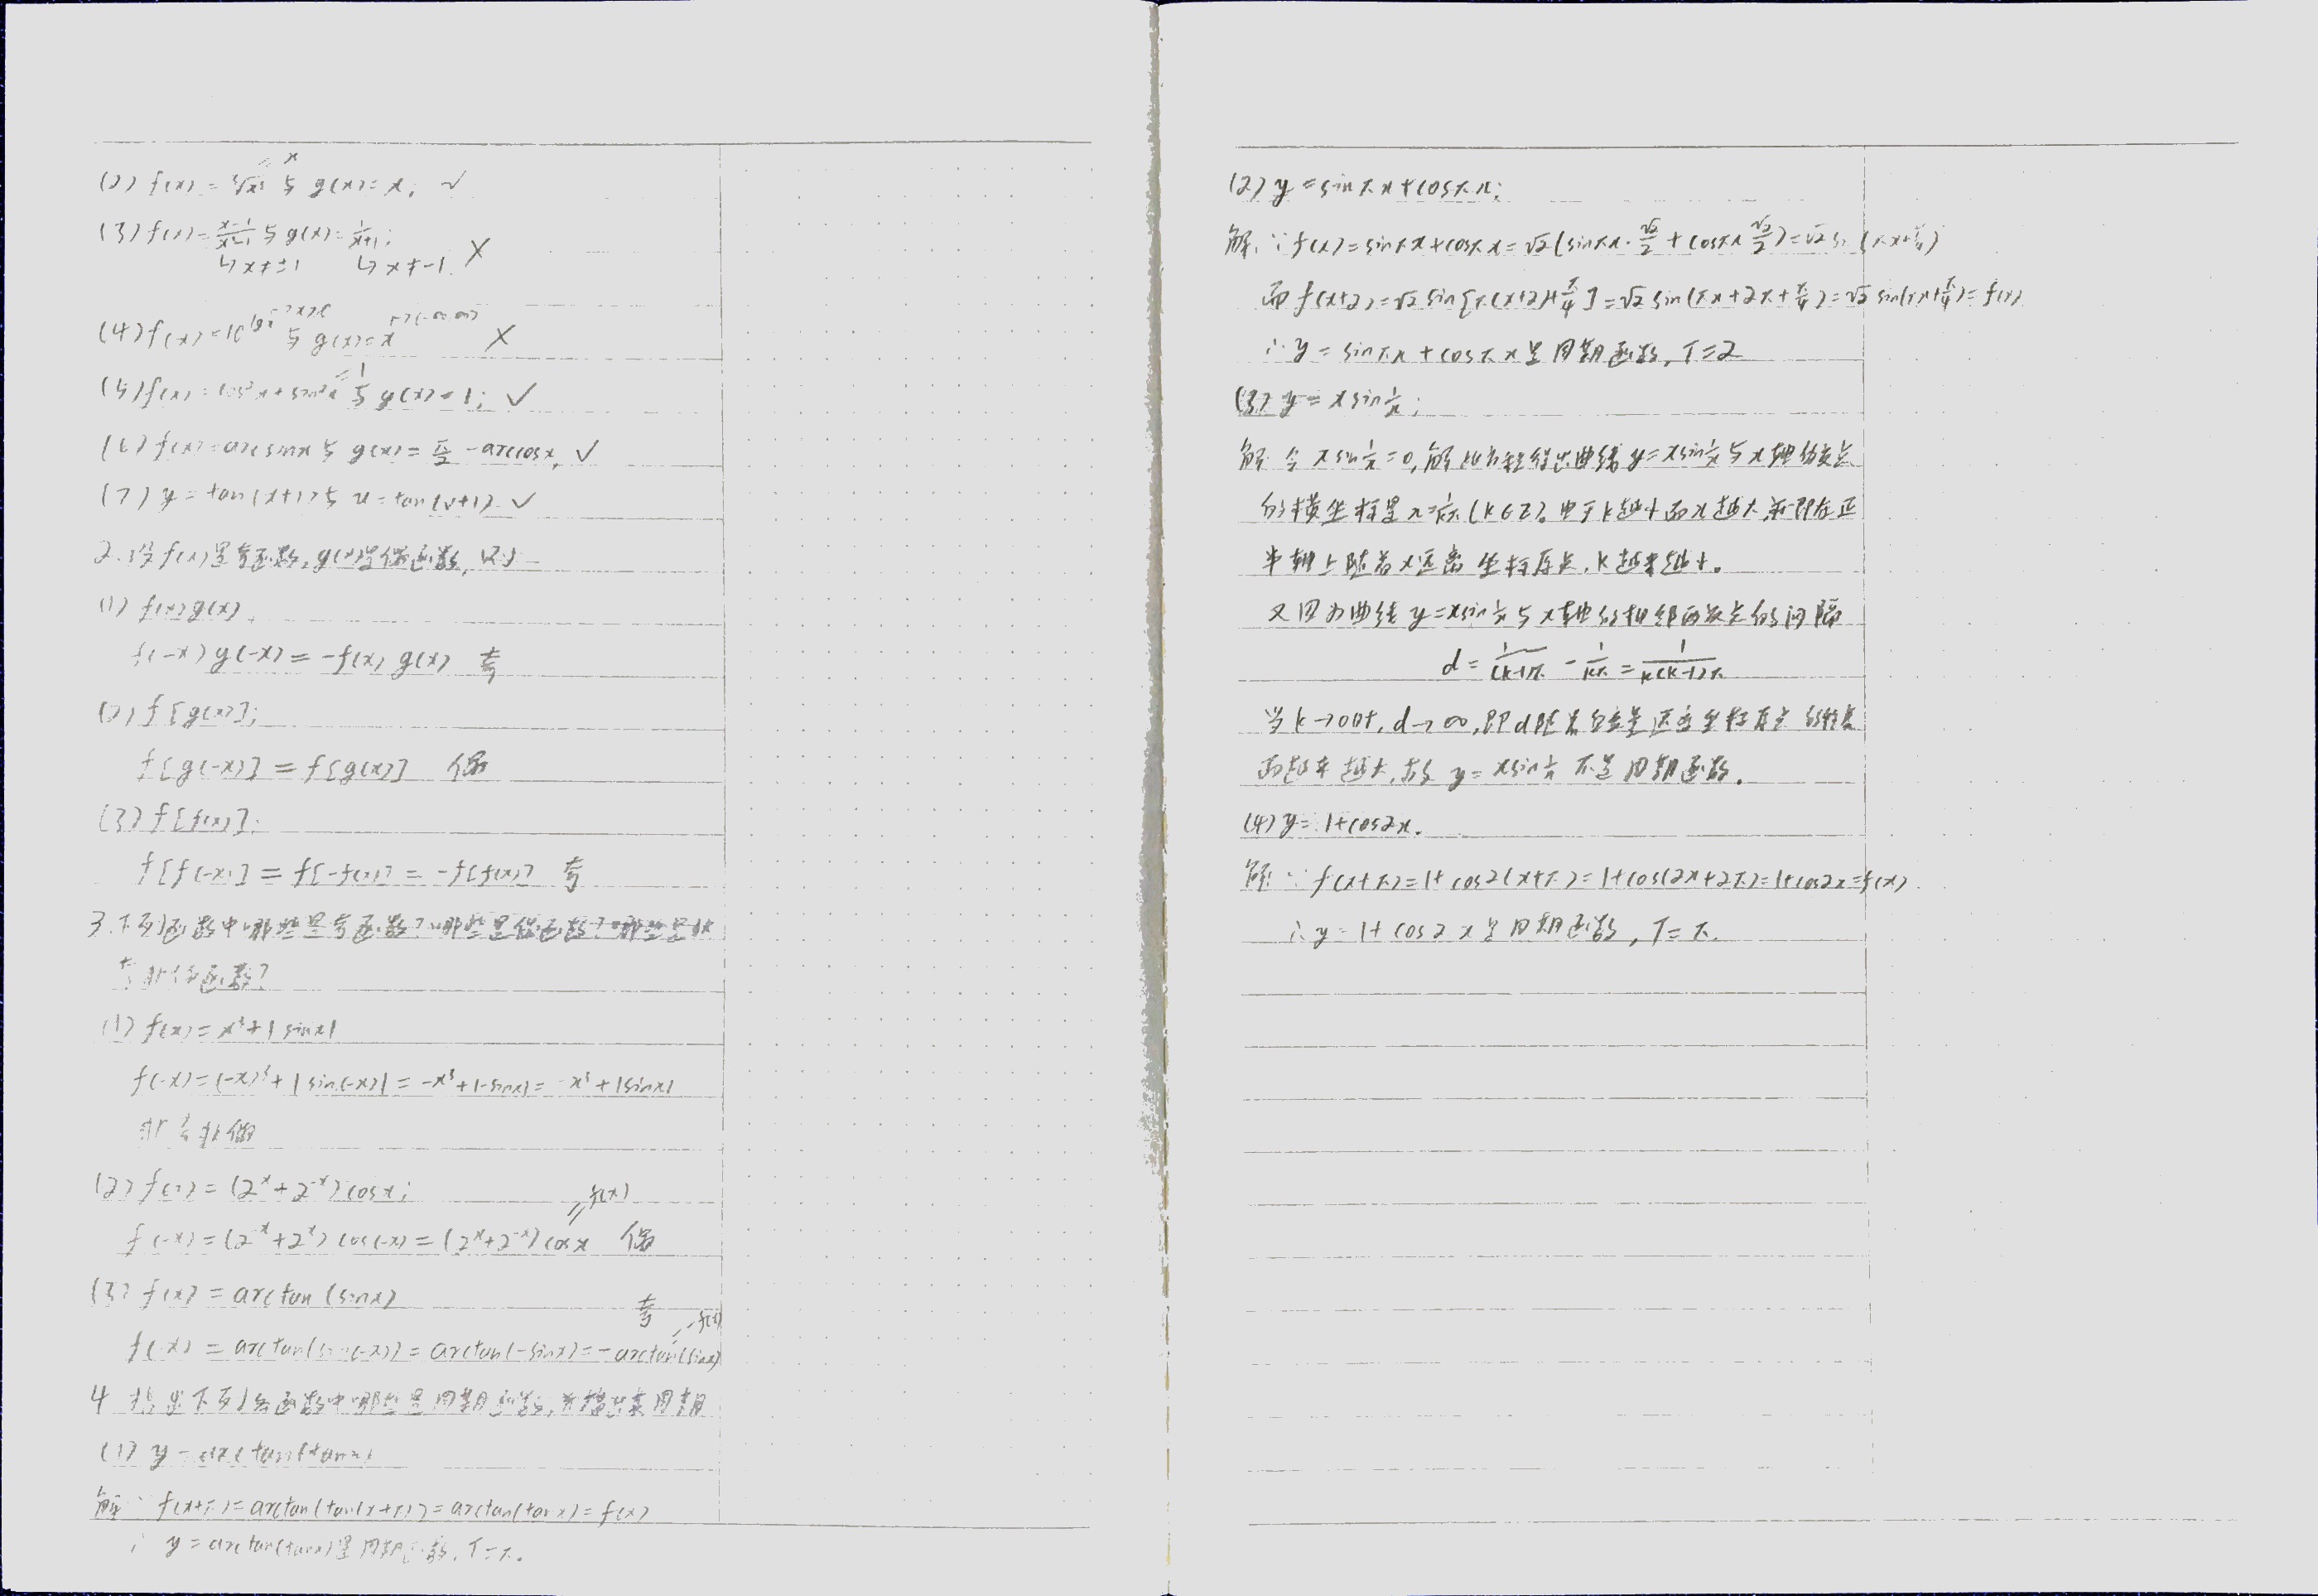 (2) f(x) = ∛x³ = x 与 g(x) = x; ✓
(3) f(x) = (x-1)/(x²-1) 与 g(x) = 1/(x+1);
↳ x≠±1 ↳ x≠-1. ✗
(4) f(x) = 10^lgx 与 g(x) = x ✗
(5) f(x) = cos²x + sin²x = 1 与 g(x) = 1; ✓
(6) f(x) = arcsinx 与 g(x) = π/2 - arccosx. ✓
(7) y = tan(x+1) 与 u = tan(v+1). ✓
2. 设f(x)是奇函数, g(x)是偶函数, 则
(1) f(x)g(x).
f(-x)g(-x) = -f(x)g(x) 奇
(2) f[g(x)];
f[g(-x)] = f[g(x)] 偶
(3) f[f(x)];
f[f(-x)] = f[-f(x)] = -f[f(x)] 奇
3. 下列函数中哪些是奇函数?哪些是偶函数?哪些是非
奇非偶函数?
(1) f(x) = x³ + |sinx|
f(-x) = (-x)³ + |sin(-x)| = -x³ + |-sinx| = -x³ + |sinx|
非奇非偶
(2) f(x) = (2^x + 2^-x) cosx;
f(-x) = (2^-x + 2^x) cos(-x) = (2^x + 2^-x) cosx = f(x) 偶
(3) f(x) = arctan(sinx)
f(-x) = arctan(sin(-x)) = arctan(-sinx) = -arctan(sinx) = -f(x) 奇
4 指出下列各函数中哪些是周期函数, 并指出其周期
(1) y = arctan(tanx)
解: ∵ f(x+π) = arctan(tan(x+π)) = arctan(tanx) = f(x)
∴ y = arctan(tanx)是周期函数, T=π.
(2) y = sinπx + cosπx;
解: ∵ f(x) = sinπx + cosπx = √2(sinπx·√2/2 + cosπx √2/2) = √2 sin(πx+π/4)
而 f(x+2) = √2 sin[π(x+2)+π/4] = √2 sin(πx+2π+π/4) = √2 sin(πx+π/4) = f(x)
∴ y = sinπx + cosπx 是周期函数, T=2
(3) y = x sin1/x;
解 令 x sin1/x = 0, 解此方程得出曲线 y = xsin1/x 与 x轴的交点
的横坐标是 x = 1/kπ (k∈Z). 由于k越小而x越大, 亦即在正
半轴上随着x远离坐标原点, k越来越小.
又因为曲线 y = xsin1/x 与 x轴的相邻两交点的间隔
d = 1/(k-1)π - 1/kπ = 1/k(k-1)π
当 k→0+, d→∞, 即d随着 远离坐标原点
而越来越大, 故 y = xsin1/x 不是周期函数.
(4) y = 1+cos2x.
解: ∵ f(x+π) = 1+cos2(x+π) = 1+cos(2x+2π) = 1+cos2x = f(x).
∴ y = 1+cos2x 是周期函数, T=π.